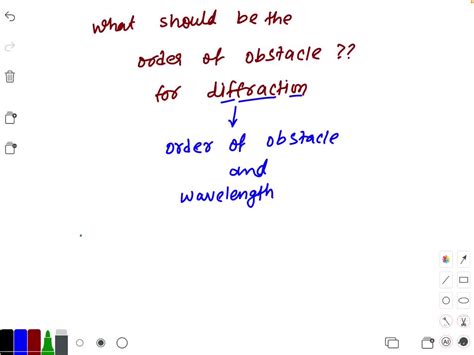 what should be the
order of obstacle ??
for diffraction
order of obstacle
and
wavelength